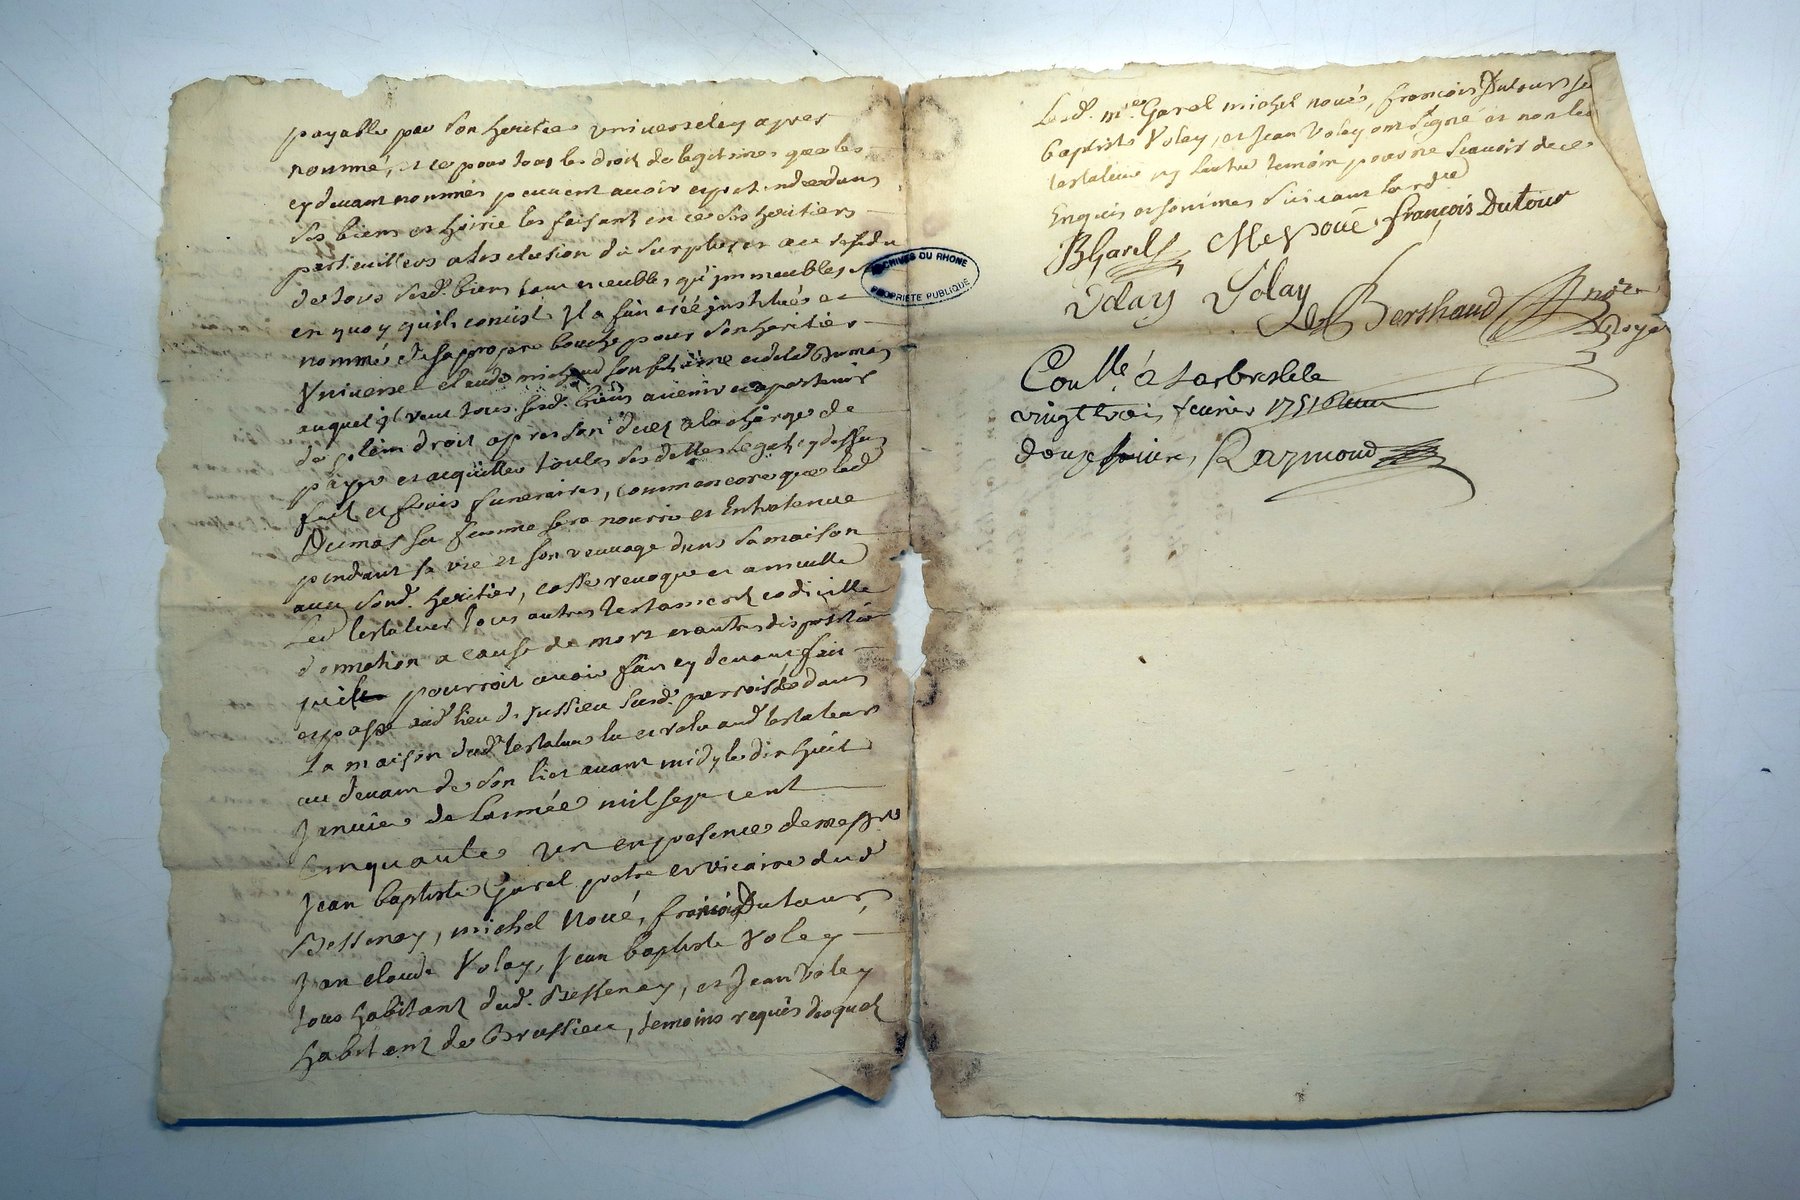 payable par son heritier universel cy apres
nommé, et ce pour tous les droit de legitimes que les
cy devant nommés peuvent avoir et pretendre dans
ses biens et hoirie les faisant en ce ses heritiers
particuillers a l'exclusion du surplus et au residu
de tous sesd. biens tant meubles qu'immeubles
en quoy quils consist il a fait créé institués et
nommé de sa propre bouche pour son heritier
Universel claude michaud son fils et de lad Dumas
auquel il veut tous sesd. biens avenir et apartenir
de plein droit apres son deces a la charge de
payer et acquitter toutes ses dettes legats cy dessus
fait et frais funeraires, comme encore que lad
Dumas sa femme sera nourrie et Entretenue
pendant sa vie et son veuvage dans sa maison
avec sond. heritier, casse revoque et annulle
Led testateur tous autres testament codicille
donnation a cause de mort et autres disposition
quil pourroit avoir fait cy devant fait
et passé aud lieu de Jussieu susd. parroisse dans
La maison dud testateur lu et relu aud testateur
au devant de son lict avant midy le dix huit
Janvier de l'année mil sept cent
Cinquante un en presence de messire
Jean baptiste Garel pretre et vicaire dud
Bessenay, michel Noué, françois Dutour,
Jean claude Volay, Jean baptiste Voley
tous habitant dud. Bessenay, et Jean Voley
habitant de Brussieu, temoins requis desquels
Lesd. mre Garel michel noués, françois Dutour Je
baptiste Voley, et Jean Voley ont signé et non led
testateur ny l'autre temoin pour ne scavoir de ce
Enquis et sommés suivant lordce
ARCHIVES DU RHONE
PROPRIETE PUBLIQUE
B Garel Me Noué françois Dutour
Volay Volay
Berthaud noire
Royal
Conllé à Larbresle le
vingt trois fevrier 1751
douze Raymond